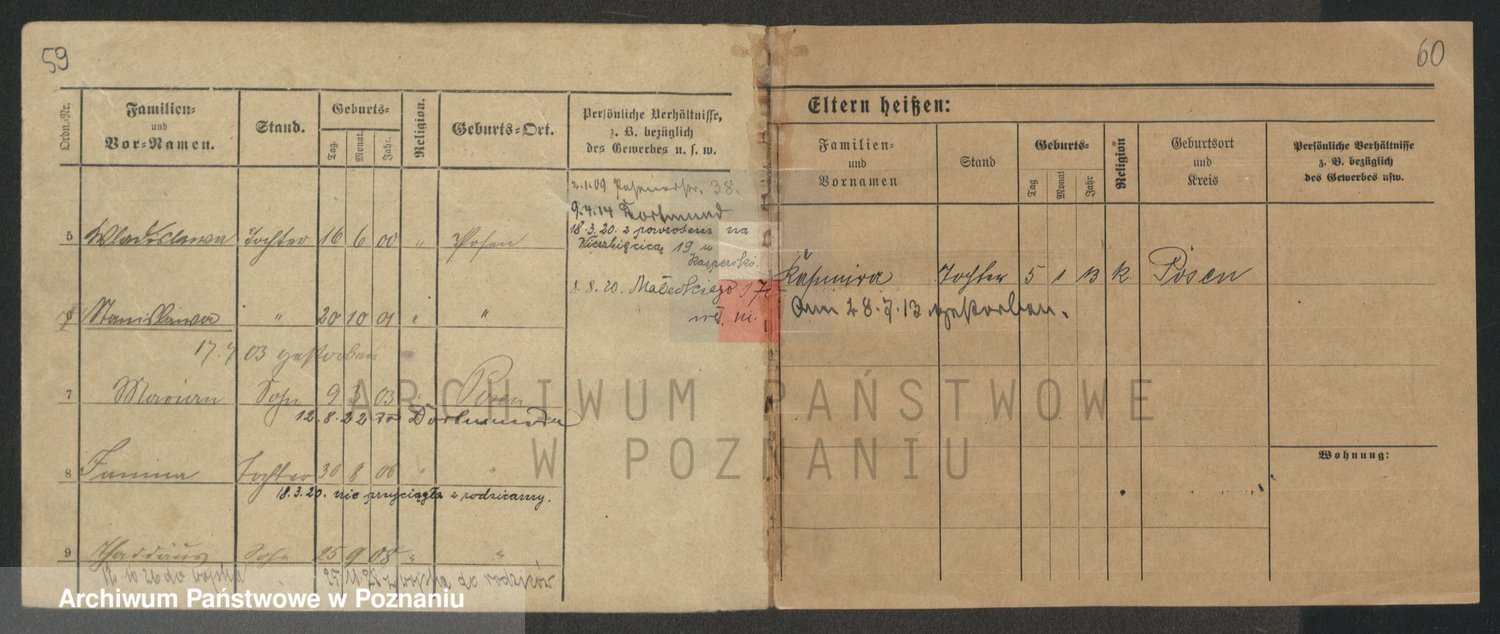 59
Ordn.-Nr.
Familien-
und
Vor-Namen.
Stand.
Geburts-
Tag.
Monat.
Jahr.
Religion.
Geburts-Ort.
Persönliche Verhältnisse,
z. B. bezüglich
des Gewerbes u. s. w.
2.1.09 Posenerstr. 38.
9.4.14 Dortmund
18.3.20. z powrotem na
19 u
Kasperska.
8.8.20. Małeckiego 17
5 Wladislawa Tochter 16 6 00 " Posen
6 Stanislawa " 20 10 01 " "
03 gestorben
7 Marian Sohn 9 3 03 " Posen
12.8.22 Dortmundu
8 Janina Tochter 30 8 06 " "
18.3.20. nie przyciągła z rodzicamy.
9 Thaddäus Sohn 25 9 08 " "
26 do wojska
z wojska do rodziców
60
Eltern heißen:
Familien-
und
Vornamen
Stand
Geburts-
Tag
Monat
Jahr
Religion
Geburtsort
und
Kreis
Persönliche Verhältnisse
z. B. bezüglich
des Gewerbes usw.
Kasimira Tochter 5 1 13 k. Posen
Am 28.7.13 gestorben.
Wohnung:
ARCHIWUM PAŃSTWOWE
W POZNANIU
Archiwum Państwowe w Poznaniu